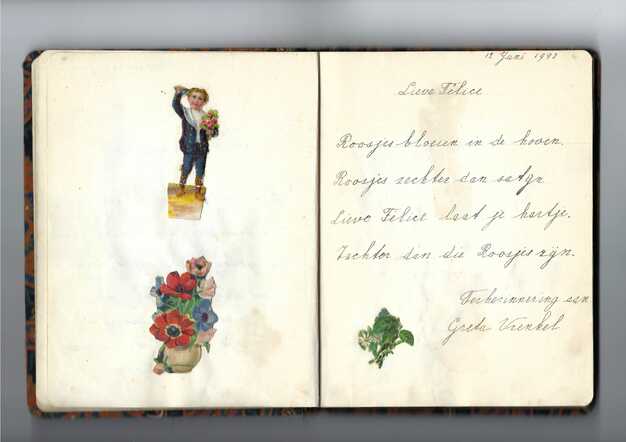 12 Juni 1942
Lieve Félice
Roosjes bloeien in de hoven.
Roosjes zechter dan satijn
Lieve Felice laat je hartje.
Zechter dan die Roosjes zijn.
Ter herinnering aan
Greta Vrenkel